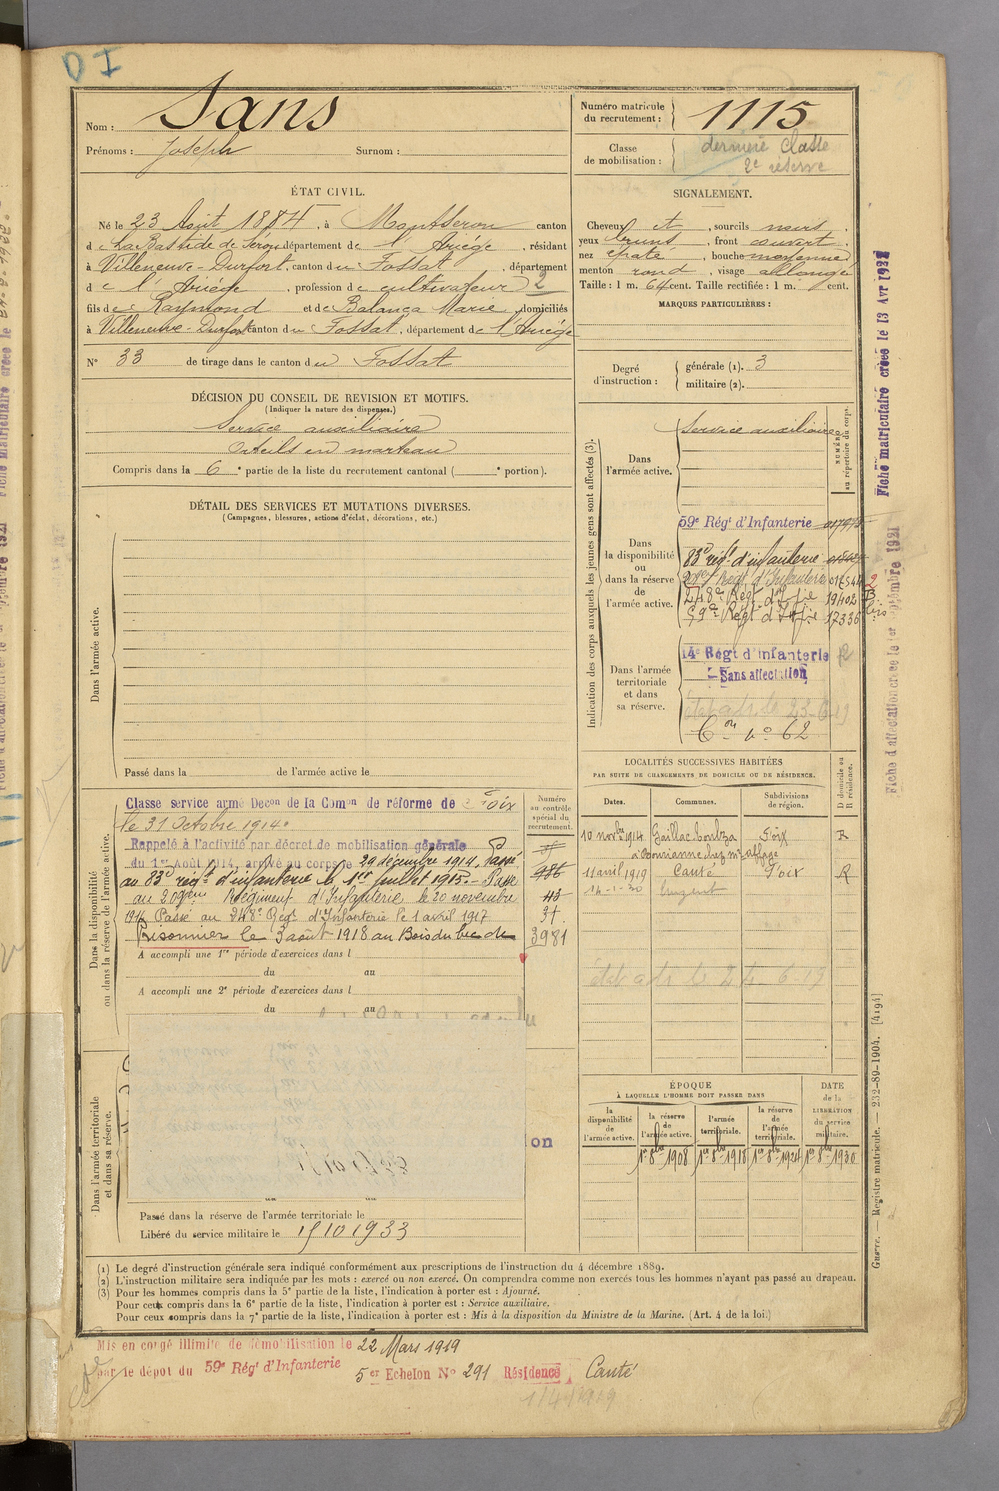 D I
Nom : Sans
Prénoms : Joseph Surnom :
Numéro matricule du recrutement : 1115
Classe de mobilisation : dernière Classe
2e réserve
ÉTAT CIVIL.
Né le 23 Août 1884, à Montseron canton
de La Bastide de Sérou département de l'Ariège, résidant
à Villeneuve-Durfort, canton du Fossat, département
de l'Ariège, profession de cultivateur 2
fils de Raymond et de Balança Marie, domiciliés
à Villeneuve-Durfort canton du Fossat, département de l'Ariège
N° 33 de tirage dans le canton du Fossat
SIGNALEMENT.
Cheveux et, sourcils noirs,
yeux bruns, front couvert,
nez épaté, bouche moyenne,
menton rond, visage allongé
Taille : 1 m. 64 cent. Taille rectifiée : 1 m. cent.
MARQUES PARTICULIÈRES :
Degré d'instruction : générale (1). 3
militaire (2).
DÉCISION DU CONSEIL DE REVISION ET MOTIFS.
(Indiquer la nature des dispenses.)
Service auxiliaire
Orteils en marteau
Compris dans la 6e partie de la liste du recrutement cantonal ( e portion).
DÉTAIL DES SERVICES ET MUTATIONS DIVERSES.
(Campagnes, blessures, actions d'éclat, décorations, etc.)
Dans l'armée active.
Passé dans la de l'armée active le
Indication des corps auxquels les jeunes gens sont affectés (3).
NUMÉRO au répertoire du corps.
Dans l'armée active. Service auxiliaire
Dans la disponibilité ou dans la réserve de l'armée active.
59e Régt d'Infanterie
83e régt d'infanterie
209e Régt d'Infanterie
248e Régt d'Infie 19402
59e Régt d'Infie 17336
Dans l'armée territoriale et dans sa réserve.
14e Régt d'infanterie
Sans affectation
Con no 62
Dans la disponibilité ou dans la réserve de l'armée active.
Numéro au contrôle spécial du recrutement.
Classé service armé Decon de la Comon de réforme de Foix
le 31 Octobre 1914.
Rappelé à l'activité par décret de mobilisation générale
du 1er Août 1914, arrivé au corps le 29 décembre 1914. Passé
au 83e régt d'infanterie le 1er juillet 1915. - Passé
au 209ème Régiment d'Infanterie le 20 novembre
1916 Passé au 248e Régt d'Infanterie le 1 avril 1917
Prisonnier le 3 août 1918 au Bois du bec de
3981
A accompli une 1re période d'exercices dans l
du au
A accompli une 2e période d'exercices dans l
du au
LOCALITÉS SUCCESSIVES HABITÉES
PAR SUITE DE CHANGEMENTS DE DOMICILE OU DE RÉSIDENCE.
Dates. Communes. Subdivisions de région. D domicile ou R résidence.
10 novbre 1914 Gaillac-toulza Foix R
11 avril 1919 Canté Foix R
14-1-30
ÉPOQUE
À LAQUELLE L'HOMME DOIT PASSER DANS
la disponibilité de l'armée active. la réserve de l'armée active. l'armée territoriale. la réserve de l'armée territoriale. DATE de la LIBÉRATION du service militaire.
1er 8bre 1908 1er 8bre 1918 1er 8bre 1924 1er 8bre 1930
Dans l'armée territoriale et dans sa réserve.
Passé dans la réserve de l'armée territoriale le
Libéré du service militaire le 15 10 1933
(1) Le degré d'instruction générale sera indiqué conformément aux prescriptions de l'instruction du 4 décembre 1889.
(2) L'instruction militaire sera indiquée par les mots : exercé ou non exercé. On comprendra comme non exercés tous les hommes n'ayant pas passé au drapeau.
(3) Pour les hommes compris dans la 5e partie de la liste, l'indication à porter est : Ajourné.
Pour ceux compris dans la 6e partie de la liste, l'indication à porter est : Service auxiliaire.
Pour ceux compris dans la 7e partie de la liste, l'indication à porter est : Mis à la disposition du Ministre de la Marine. (Art. 4 de la loi.)
Mis en congé illimité de démobilisation le 22 Mars 1919
par le dépôt du 59e Régt d'Infanterie
5er Echelon N° 291 Résidence Canté
Guerre. — Registre matricule. — 232-89-1904. [4194]
Fiche matriculaire créée le 13 Avr 1932
Fiche d'affectation créée le 1er Septembre 1921